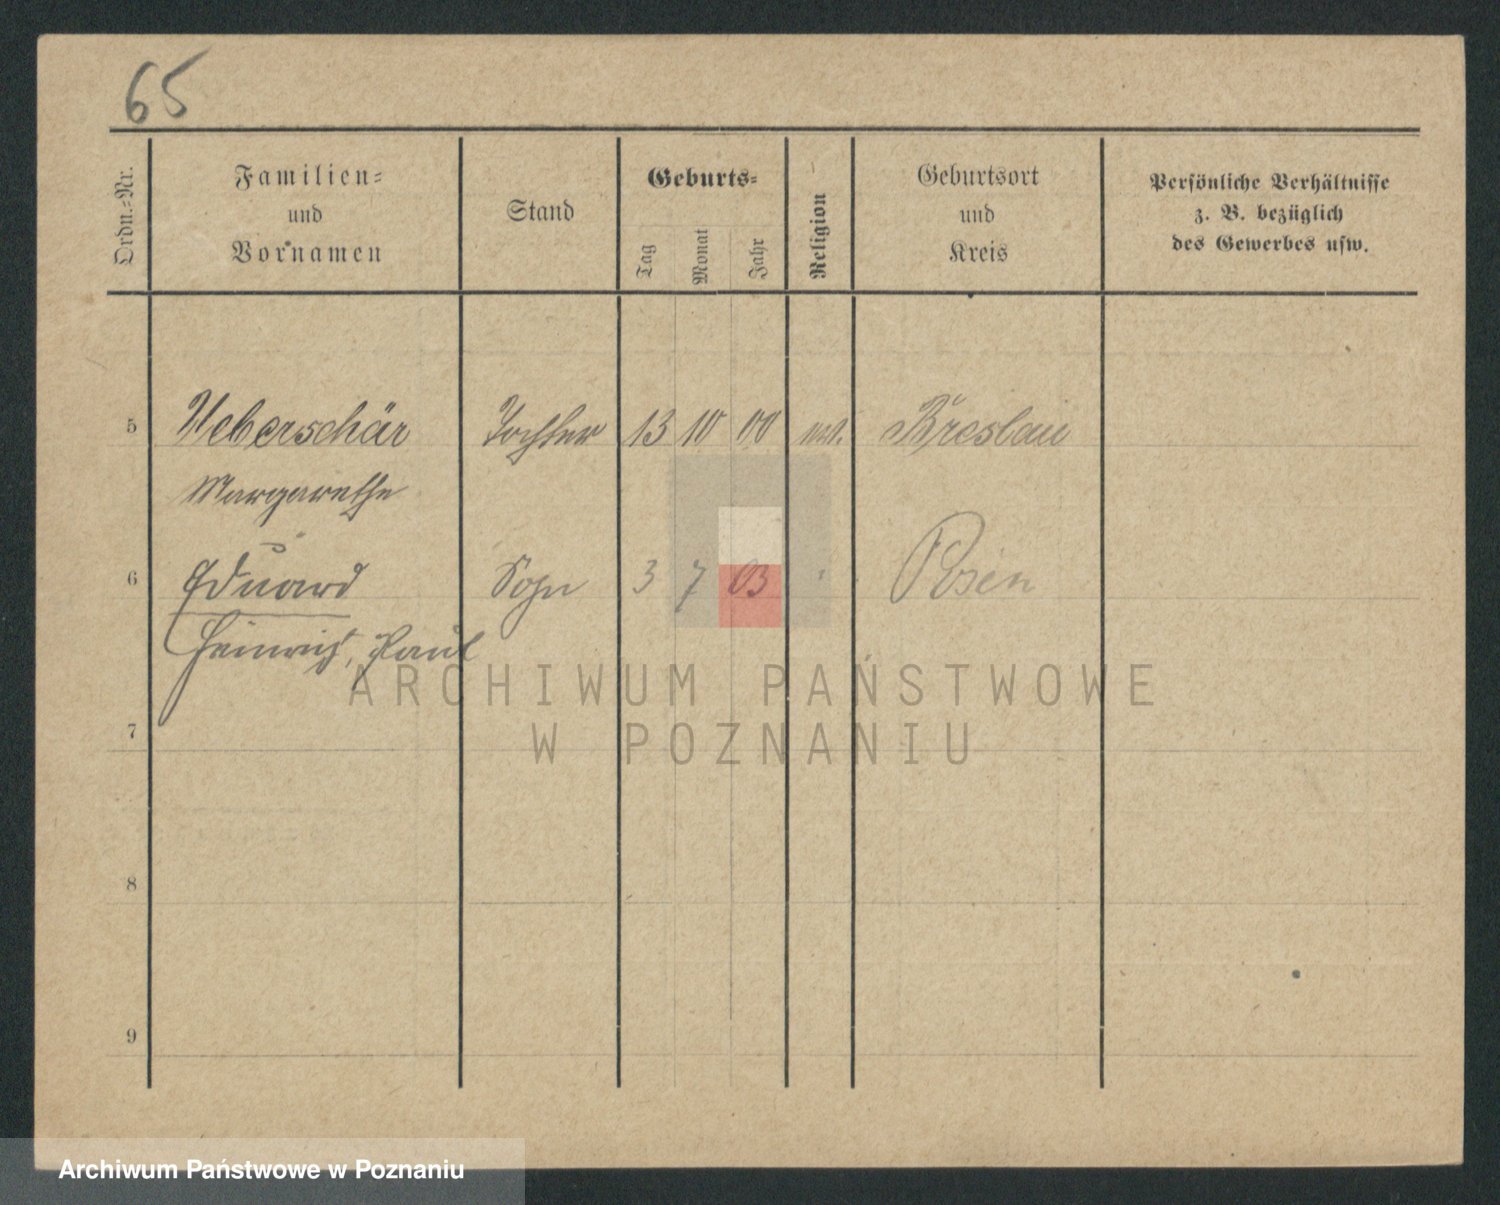 65
Ordn.-Nr.
Familien-
und
Vornamen
Stand
Geburts-
Tag
Monat
Jahr
Religion
Geburtsort
und
Kreis
Persönliche Verhältnisse
z. B. bezüglich
des Gewerbes usw.
5 Ueberschär Tochter 13 10 00 Breslau
Margarethe
6 Eduard Sohn 3 7 03 " Posen
Heinrich, Paul
7
8
9
ARCHIWUM PAŃSTWOWE
W POZNANIU
Archiwum Państwowe w Poznaniu